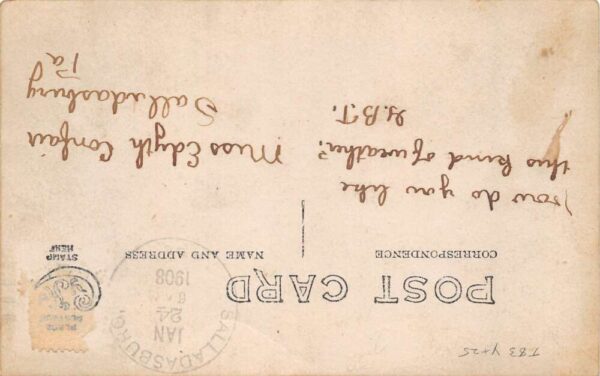 T83 4+25
POST CARD
CORRESPONDENCE
NAME AND ADDRESS
PLACE
POSTAGE
STAMP
HERE
SALLADASBURG
JAN
24
1908
How do you like
this kind of weather?
G.B.T.
Miss Edyth Confair
Salladasburg
Pa